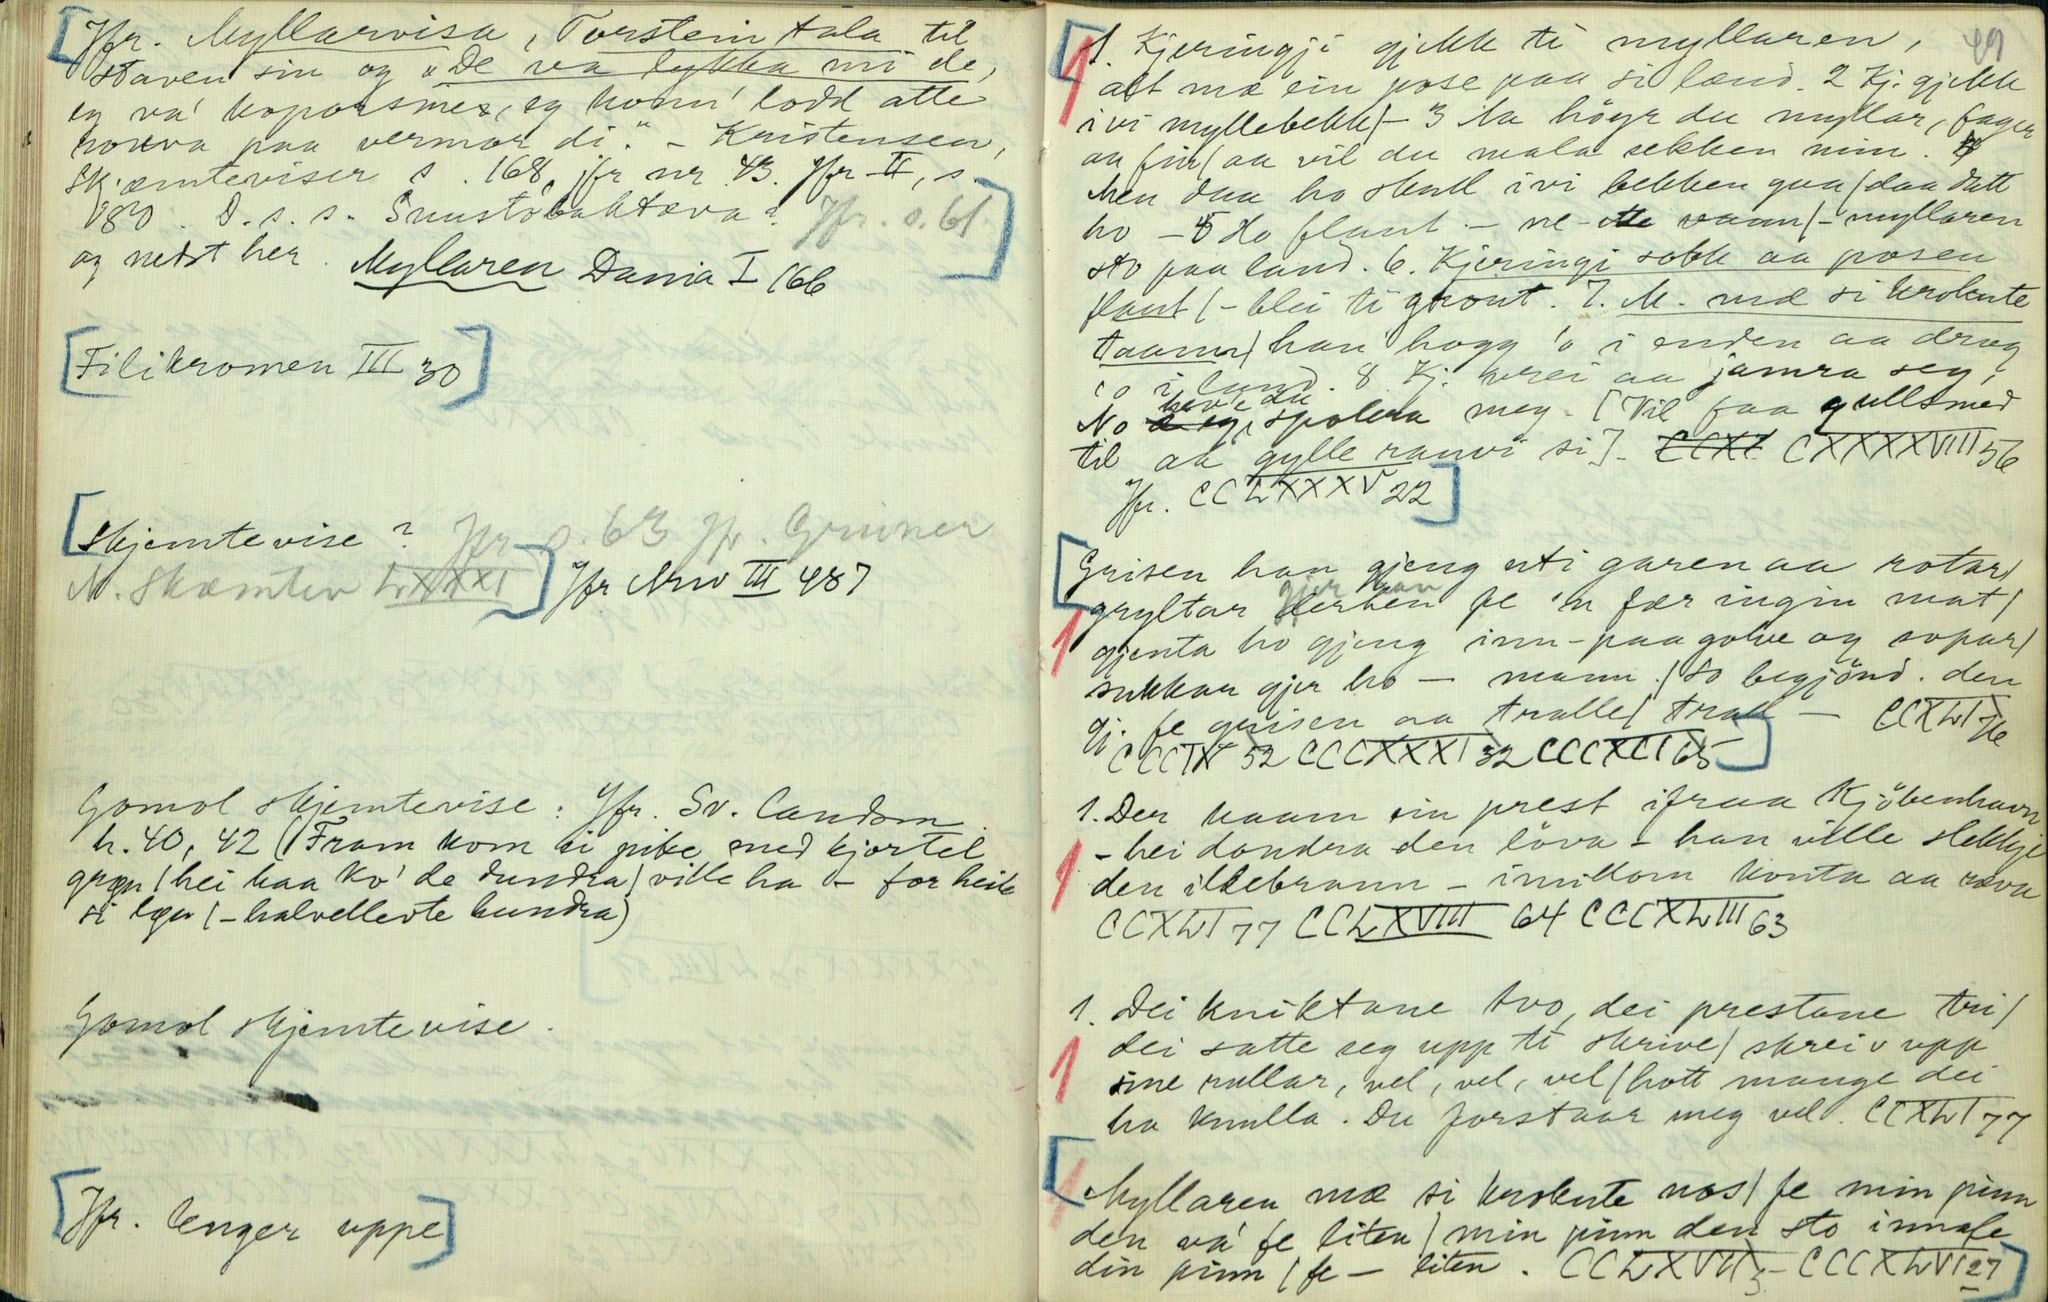 Jfr. Myllarvisa, Torstein tala til
staven sin og "De va lykka mi de,
eg va' koparsmed, eg kom' lodd atte
rova paa vermor di." - Kristensen,
Skjæmteviser s. 168, jfr nr. 43. Jfr II, s
180. D. s. s. Snustobaktova? Jfr. s. 61
og nedst her. Myllaren Dania I 166
Filikromen III 30
Skjemtevise? Jfr s. 63 Jfr. Grüner
N. Skæmtev LXXXI Jfr Nrw III 487
Gomol skjemtevise: Jfr. Sv. Landsm.
h. 40, 42 (Fram kom ei pike med kjortel
grøn / hei haa ko' de dundra / ville ha - for heile
si løn / - halvellevte hundra)
Gomol skjemtevise.
Jfr. lenger uppe
49
1. Kjeringji gjekk ti myllaren,
alt mæ ein pose paa si lænd. 2 Kj. gjekk
ivi myllebekk / - 3 Aa høyr du myllar, fager
aa fin / aa vil du mala sekken min.
Men daa ho skull ivi bekken gaa / daa datt
ho - 5 Ho flaut - ne - vann / - myllaren
sto paa land. 6. Kjeringi sokk aa posen
flaut / - blei ti graut. 7. M. mæ si krokute
taann / han hogg 'o i enden aa drog
'o i land. 8 Kj. vrei aa jamra seg,
No heve du spolera meg. [Vil faa gullsmed
til aa gylle rauvi si]. CCXI CXXXXVIII 56
Jfr. CCLXXXV 22
1 Grisen han gjeng uti garen aa rotar /
gryltar gjer han fe 'n fær ingin mat /
gjenta ho gjeng inn-paa golve og sopar /
sukkar gjer ho - mann. / So begjønd. den
gj. fe grisen aa tralle / traa - CCXLI 76
CCCIV 52 CCCXXXI 32 CCCXCI 65
1. Der kaam ein prest ifraa Kjøbenhavn
- hei dondra den løva - han ville slekkje
den ildebrann - imillom konta aa rova
CCXLI 77 CCLXVIII 64 CCCXLIII 63
1. Dei kniktane tvo, dei prestane tri /
dei satte seg upp ti skrive / skreiv upp
sine rullar, vel, vel, vel / hott mange dei
ha knulla. Du forstaar meg vel. CCXLI 77
1 Myllaren mæ si krokute nos / fe min pinn
den va' fe liten / min pinn den sto innafe
din pinn / fe - liten. CCLXVII 5 - CCCXLVI 27